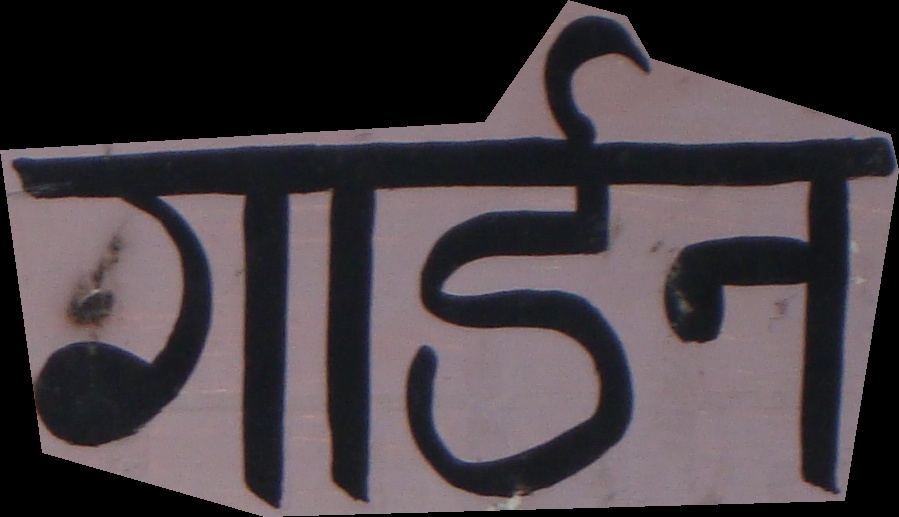 गार्डन